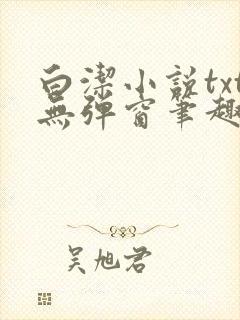 白潔小說txt
無彈窗筆趣
吴旭君